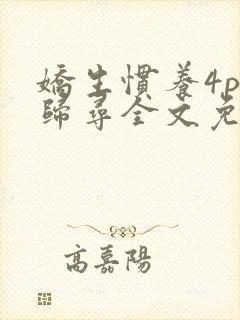 嬌生慣養4p
歸尋全文免
高嘉陽